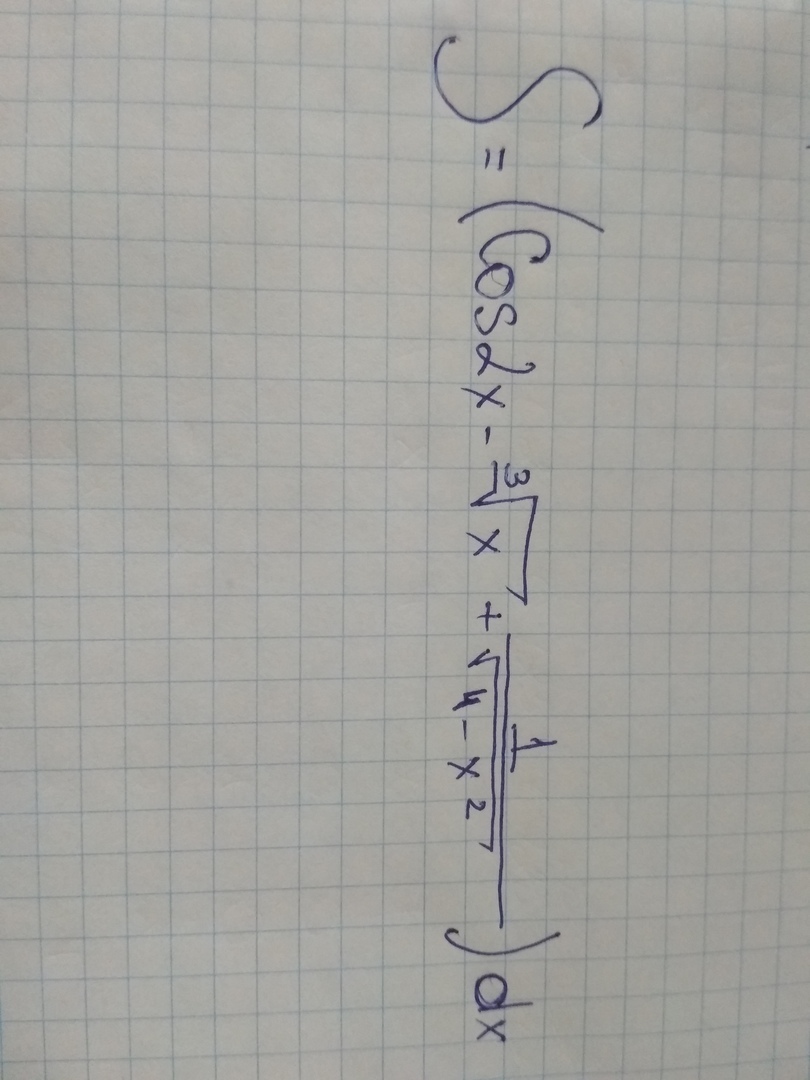 ∫ = (Cos2x - ∛x + 1/√(4-x²)) dx